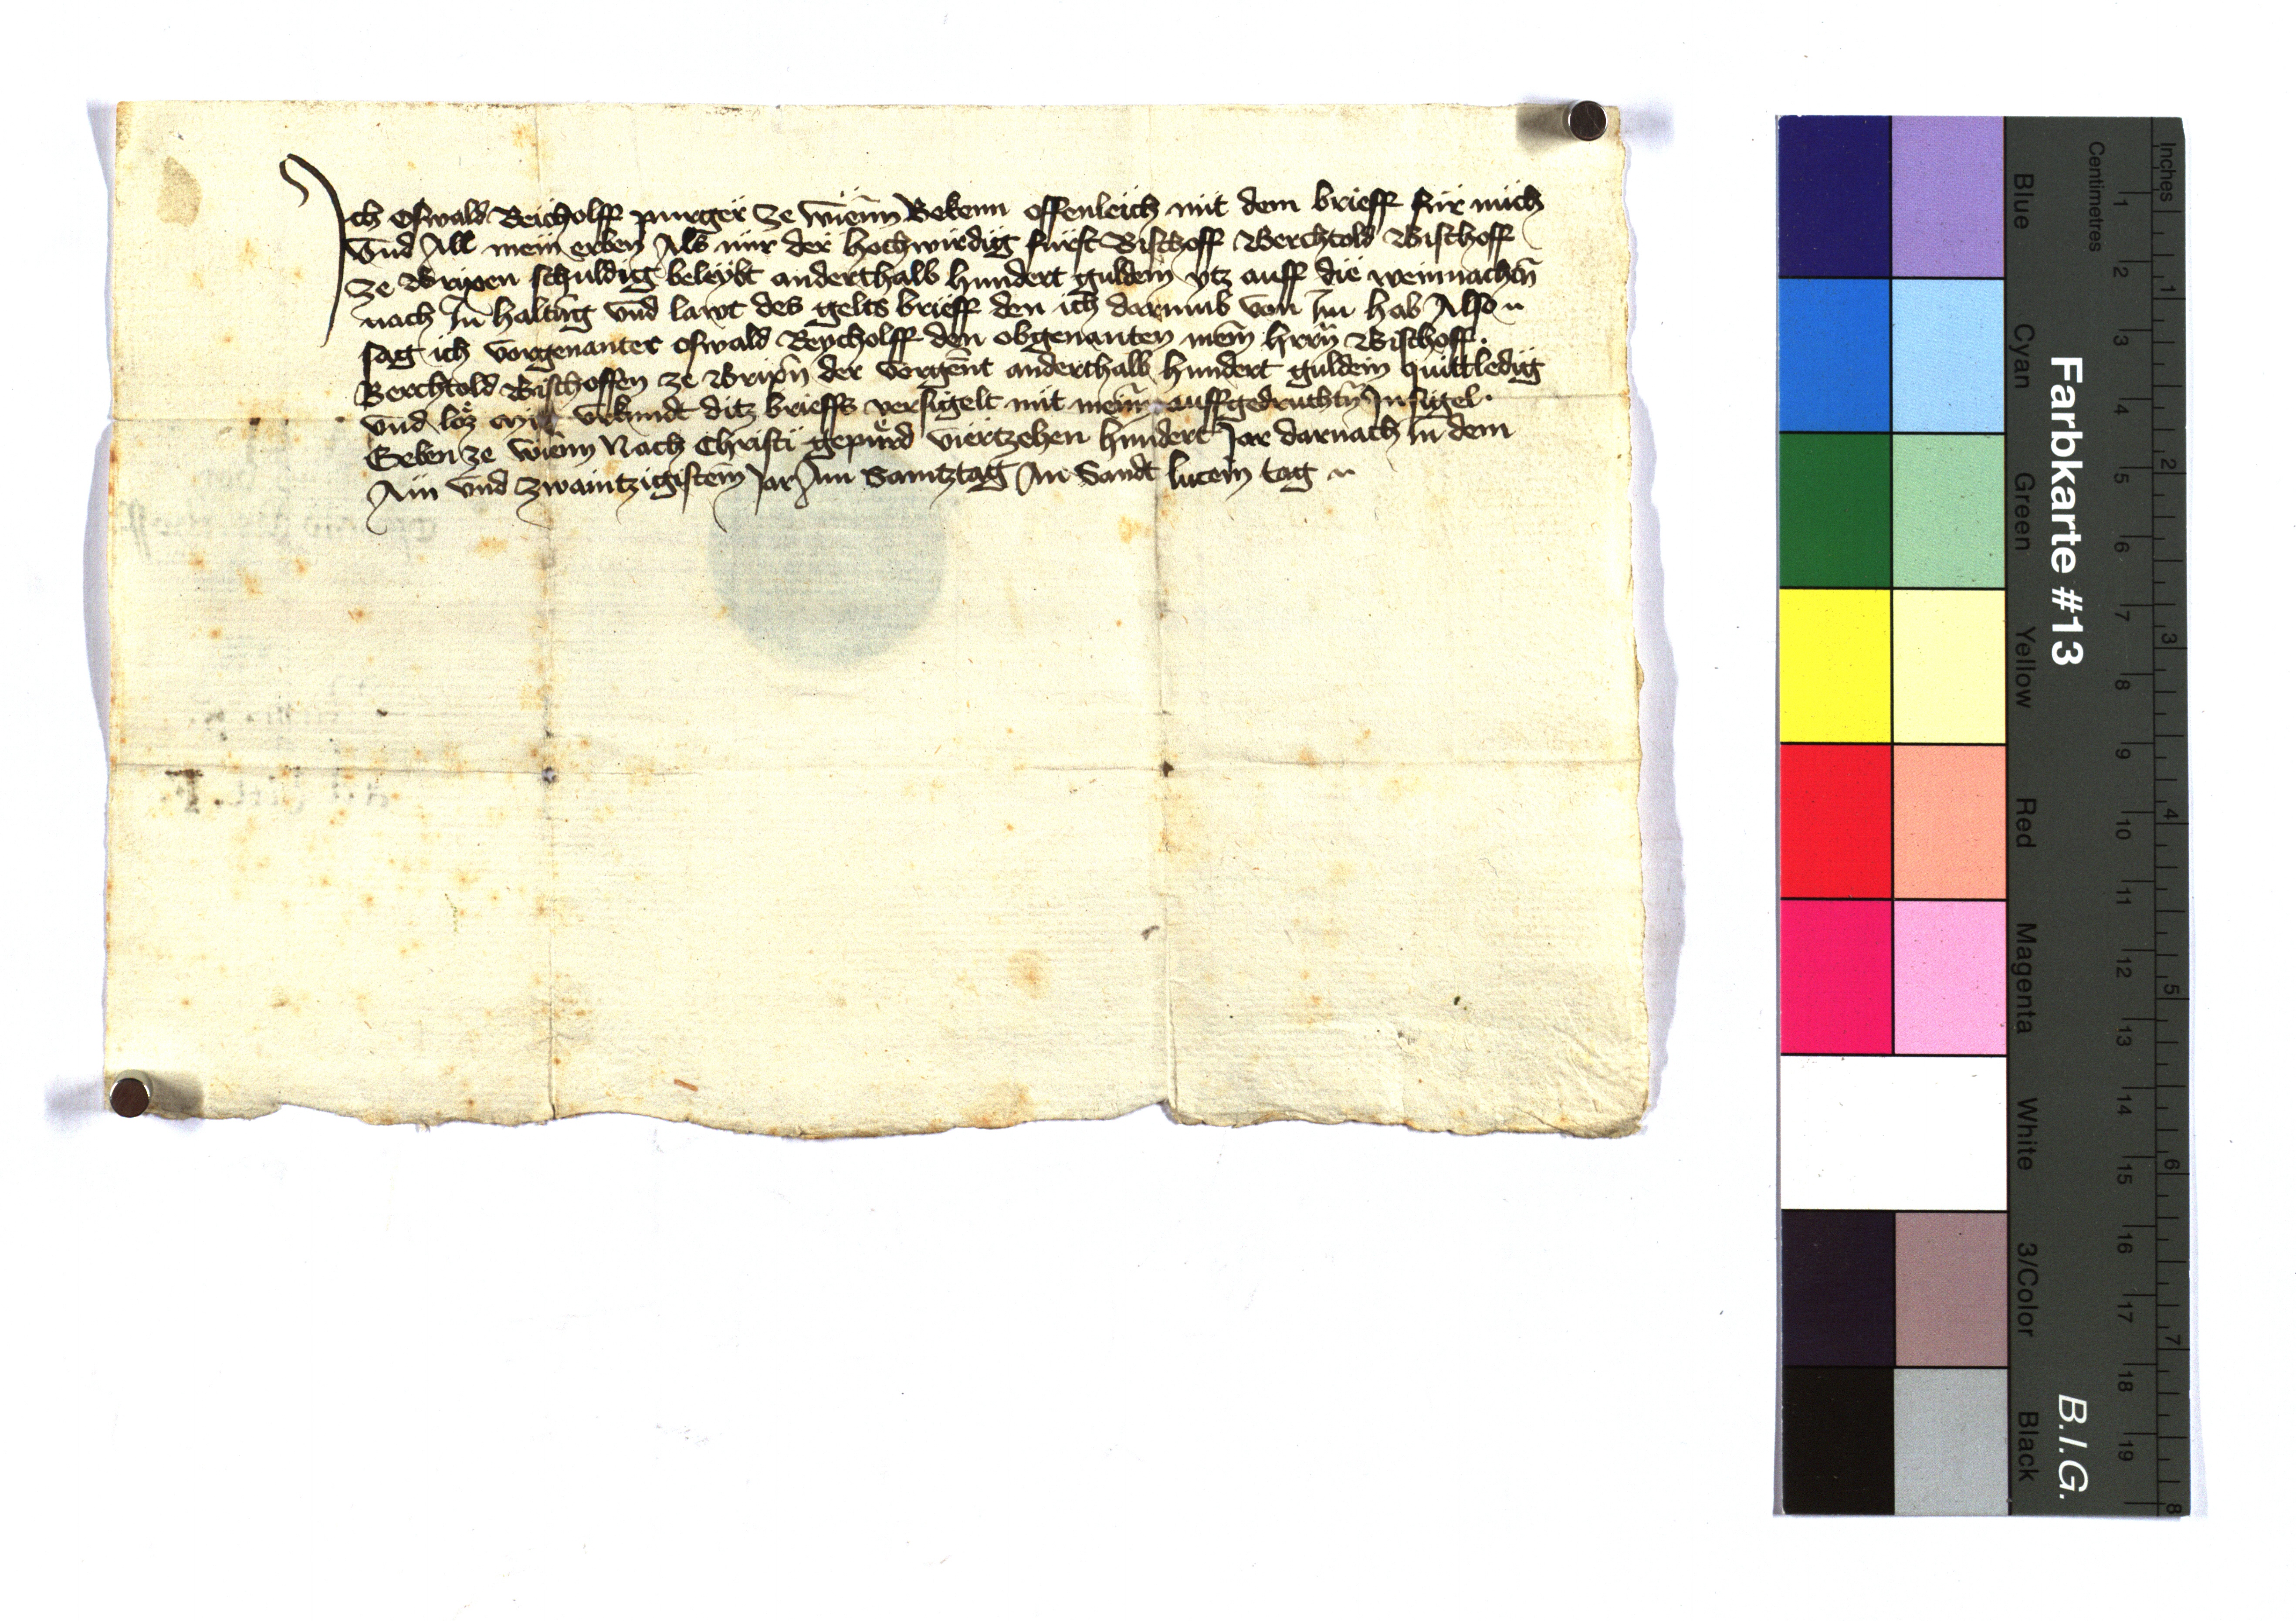 Ich Oswald Reicholff purger ze wienn Bekenn offenleich mit dem brieff für mich
vnd All mein erben Als mir der hochwirdig fürst Bischoff Berchtold Bischoff
ze Brixen schuldig beleybt anderthalb hundert guldein ytz auff die weinnachtn̄
nach In haltūg vnd lawt des gelts brieff den ich darumb von Im hab Also
sag ich vorgenanter Oswald Reycholff den obgenanten mein̄ hrrn̄ Bischoff
Berchtold Bischoffen ze Brixn̄ der vorgen̄t anderthalb hundert guldein quittledig
vnd loz mit vrkundt ditz brieffs versigelt mit meinē auffgedruchtn̄ Insigel
Geben ze wienn Nach Christi gepurd viertzehen hundert Jar darnach In dem
Ain vnd zwaintzigistem̄ Jar Am Samtztag An Sandt lucein tag
Farbkarte #13
B.I.G.
Blue
Cyan
Green
Yellow
Red
Magenta
White
3/Color
Black
Centimetres
1 2 3 4 5 6 7 8 9 10 11 12 13 14 15 16 17 18 19
Inches
1 2 3 4 5 6 7 8